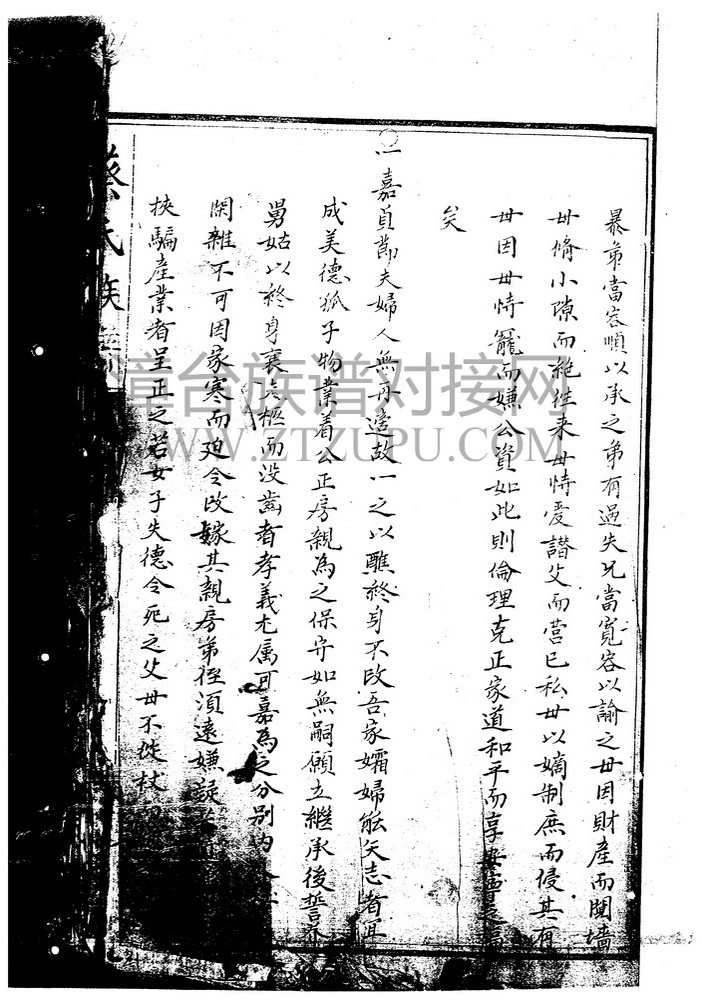 暴弟當容順以承之弟有過失兄當寬容以諭之毋因財產而鬩墻
毋脩小隙而絕往来毋恃爱譛父而营己私毋以嫡制庶而侵其有
毋因毋恃寵而嫌公資如此則倫理克正家道和平而享安寧之福
矣
一嘉貞莭夫婦人無再適故一之以醮終身不改吾家孀婦能矢志者宜
成美德孤子物業着公正房親為之保守如無嗣願立繼承後誓养
舅姑以終身襄大柩而没齒者孝義尤属可嘉為之分别内
閑雜不可因家寒而廹令改嫁其親房弟侄湏遠嫌疑
挾騙產業者呈正之若女子失德令死之父毋不捗杖
蔡氏族譜
漳台族谱对接网
WWW.ZTXUPU.COM